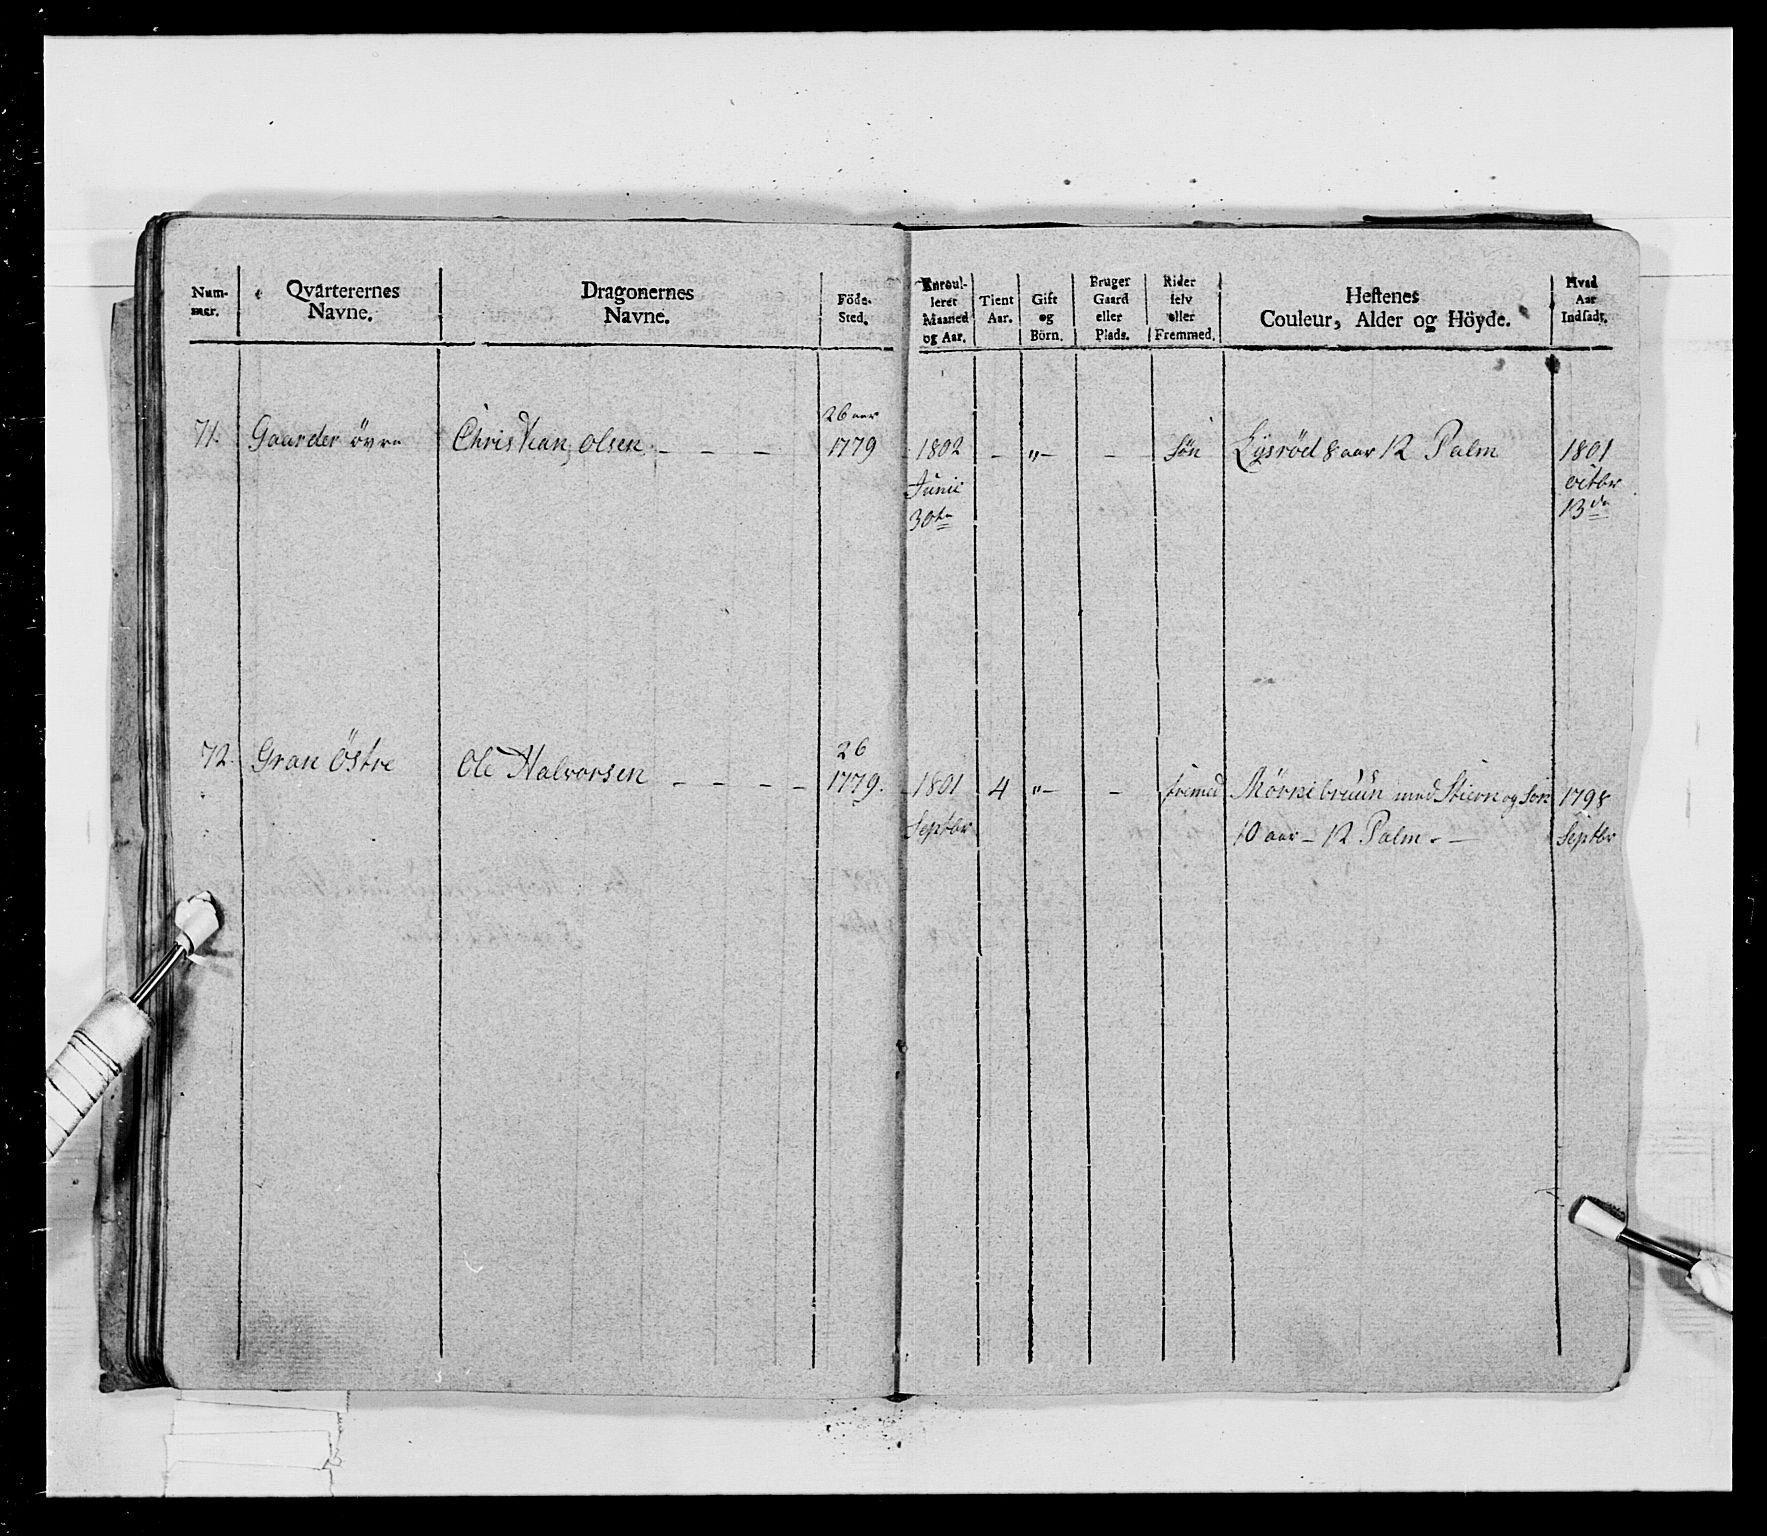 Num-
mer.
Qvarterernes
Navne.
Dragonernes
Navne.
Föde-
Sted.
Enroul-
leret
Maaned
og Aar.
Tient
Aar.
Gift
og
Börn.
Bruger
Gaard
eller
Plads.
Rider
selv
eller
Fremmed.
Hestenes
Couleur, Alder og Höyde.
Hvad
Aar
Indsadt.
71. Gaarder övre Christian Olsen - - -
26 aar
1779
1802
Junii
30te
- "- - Søn Lysrød 8 aar 12 Palm
1801
octbr
13de
72. Gran Östre Ole Halvorsen - - - -
26
1779.
1801
Septbr
4 "- - fremed Mørkebruun med Stiern og Sne
10 aar - 12 Palm. -
1798
Septbr